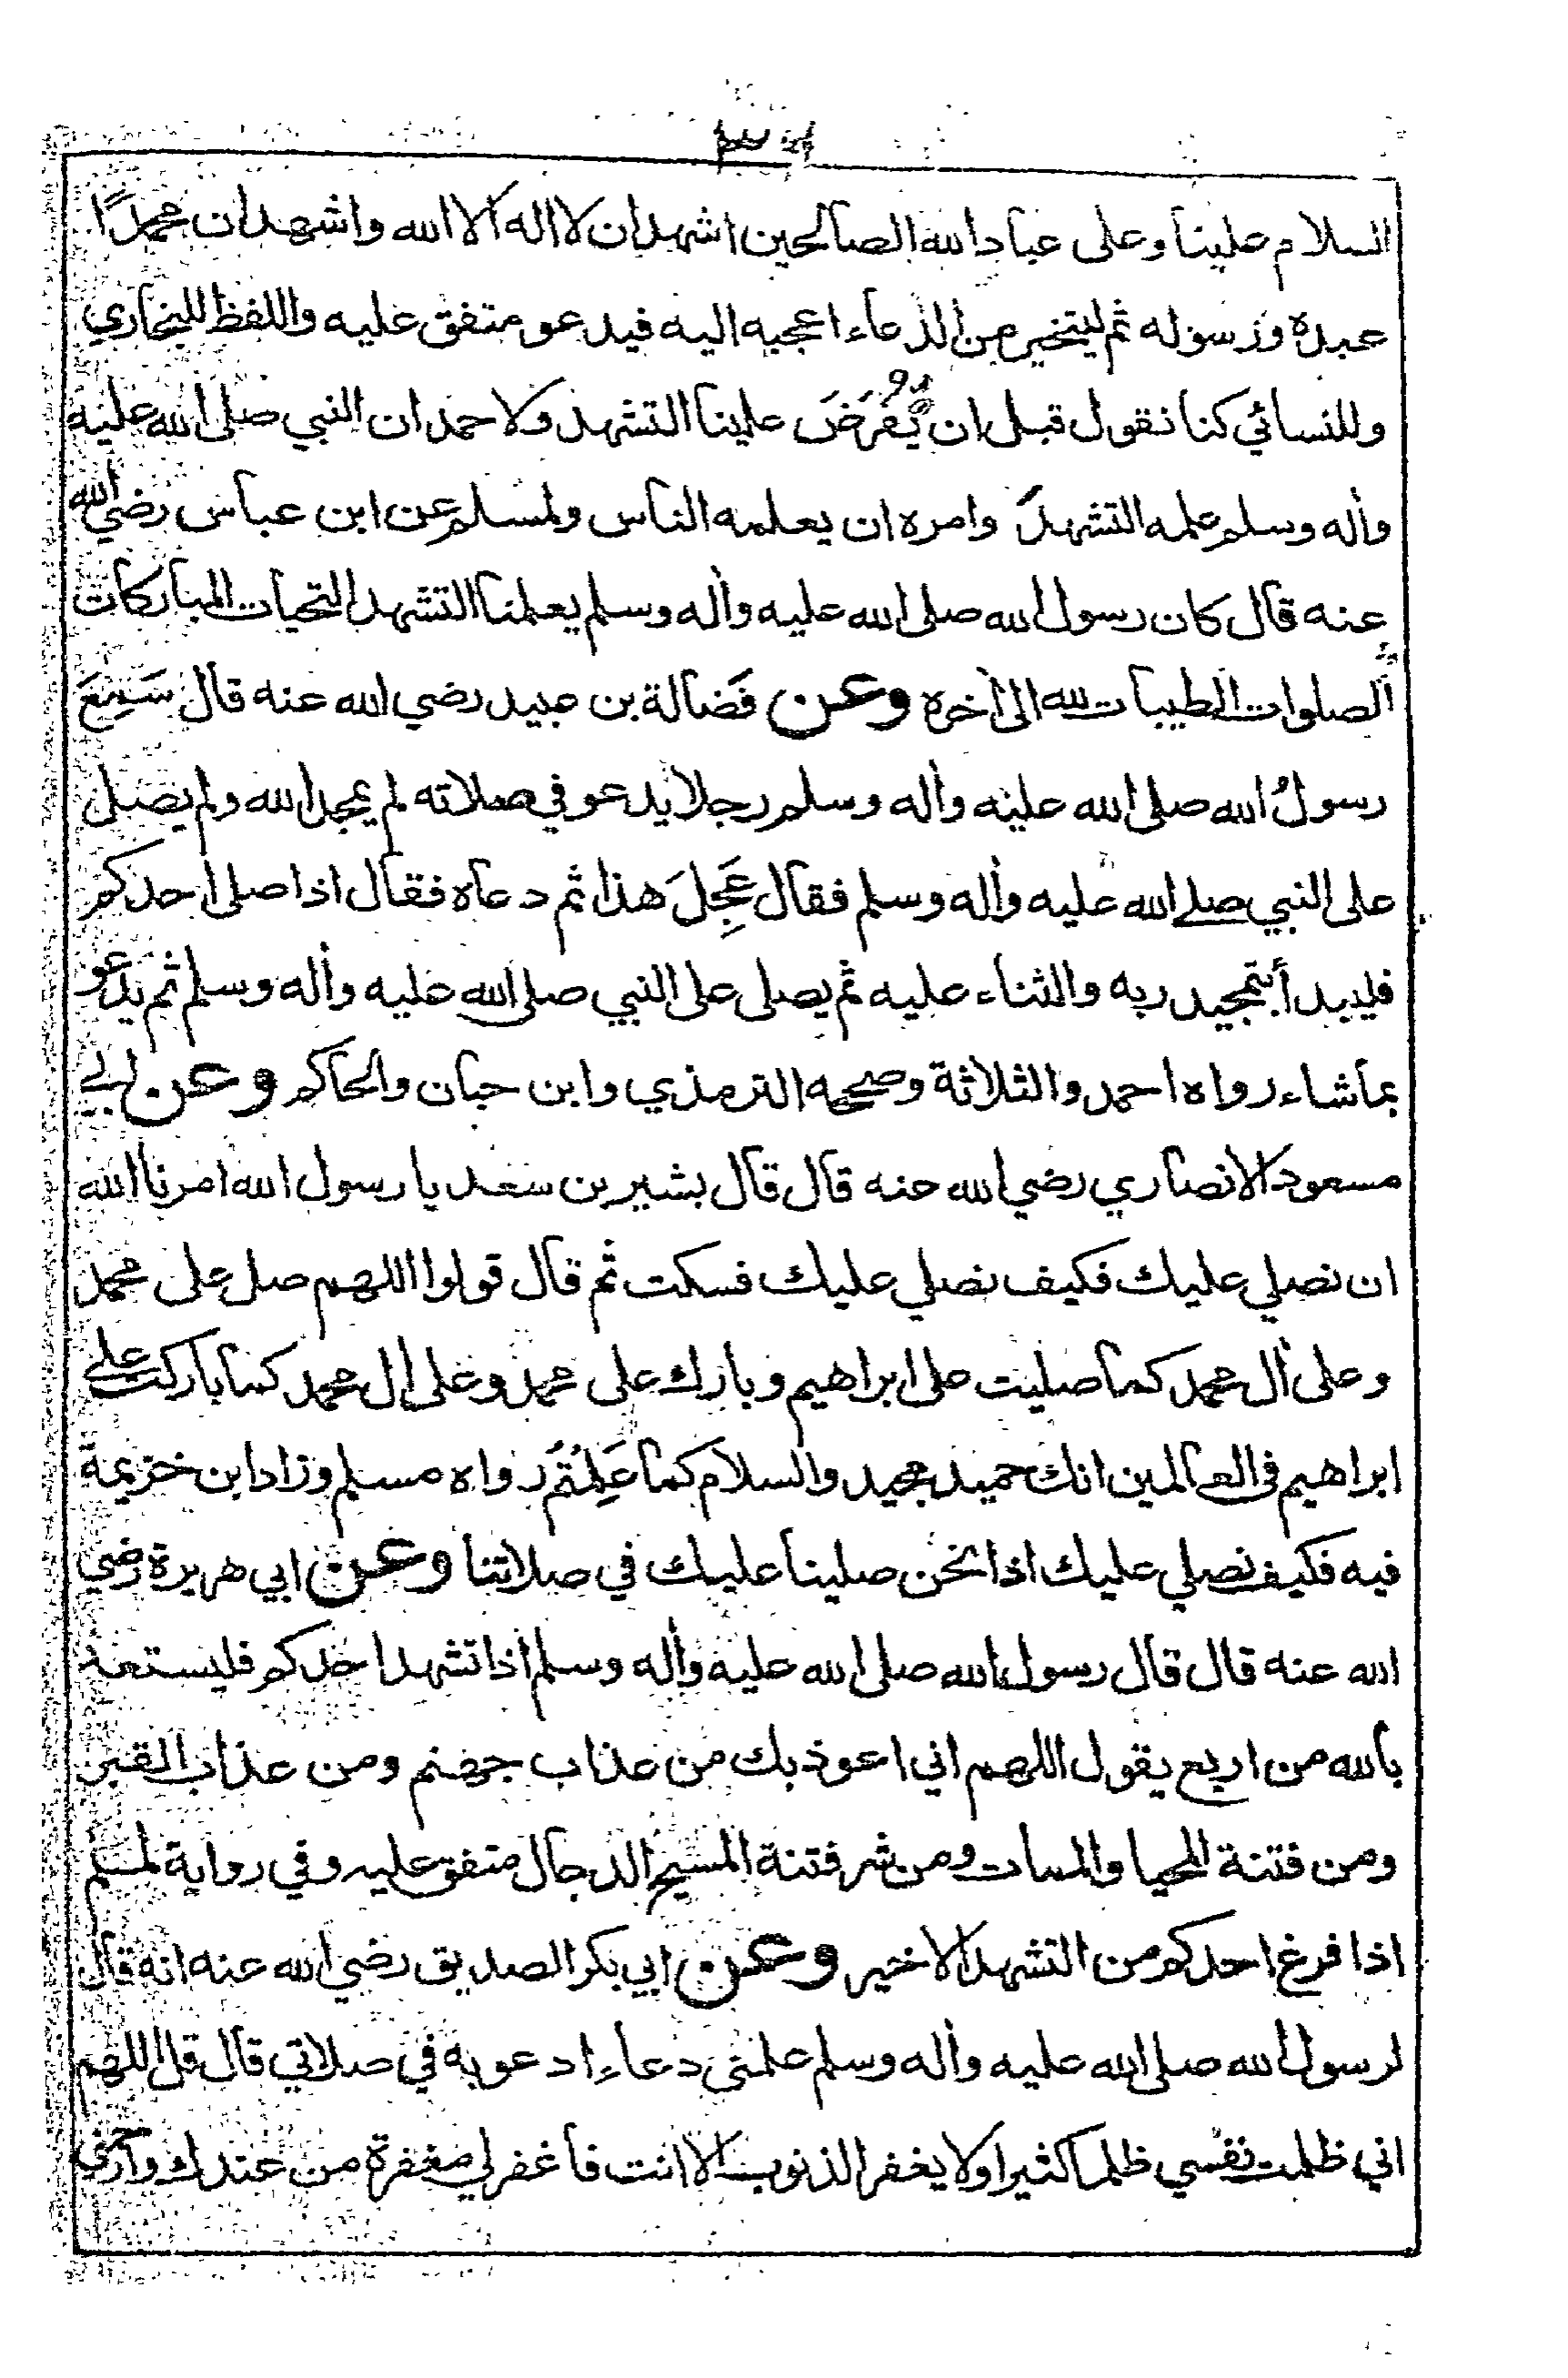 السلام علينا وعلى عباد الله الصالحين اشهد ان لا اله الا الله واشهد ان محمدًا
عبده ورسوله ثم ليتخير من الدعاء اعجبه اليه فيدعو متفق عليه واللفظ للبخاري
وللنسائي كنا نقول قبل ان يُفرَضَ علينا التشهد ولاحمد ان النبي صلى الله عليه
وأله وسلم علمه التشهد وامره ان يعلمه الناس ولمسلم عن ابن عباس رضي الله
عنه قال كان رسول الله صلى الله عليه وأله وسلم يعلمنا التشهد التحيات المباركات
الصلوات الطيبات لله الى أخره وعن فَضالة بن عبيد رضي الله عنه قال سَمِعَ
رسولُ الله صلى الله عليه وأله وسلم رجلا يدعو في صلاته لم يمجد الله ولم يصل
على النبي صلى الله عليه وأله وسلم فقال عَجِلَ هذا ثم دعاه فقال اذا صلى احدكم
فليبدأ بتمجيد ربه والثناء عليه ثم يصلى على النبي صلى الله عليه وأله وسلم ثم يدعو
بما شاء رواه احمد والثلاثة وصححه الترمذي وابن حبان والحاكم وعن ابي
مسعود الانصاري رضي الله عنه قال قال بشير بن سعد يا رسول الله امرنا الله
ان نصلي عليك فكيف نصلي عليك فسكت ثم قال قولوا اللهم صل على محمد
وعلى أل محمد كما صليت على ابراهيم وبارك على محمد وعلى أل محمد كما باركت على
ابراهيم فى العالمين انك حميد مجيد والسلام كما عَلِمْتُم رواه مسلم وزاد ابن خزيمة
فيه فكيف نصلي عليك اذا نحن صلينا عليك في صلاتنا وعن ابي هريرة رضي
الله عنه قال قال رسول الله صلى الله عليه وأله وسلم اذا تشهد احدكم فليستعذ
بالله من اربع يقول اللهم اني اعوذ بك من عذاب جهنم ومن عذاب القبر
ومن فتنة المحيا والممات ومن شر فتنة المسيح الدجال متفق عليه وفي رواية لمسلم
اذا فرغ احدكم من التشهد الاخير وعن ابي بكر الصديق رضي الله عنه انه قال
لرسول الله صلى الله عليه وأله وسلم علمنى دعاء ادعو به في صلاتي قال قل اللهم
اني ظلمت نفسي ظلما كثيرا ولا يغفر الذنوب الا انت فاغفر لي مغفرة من عندك وارحمني